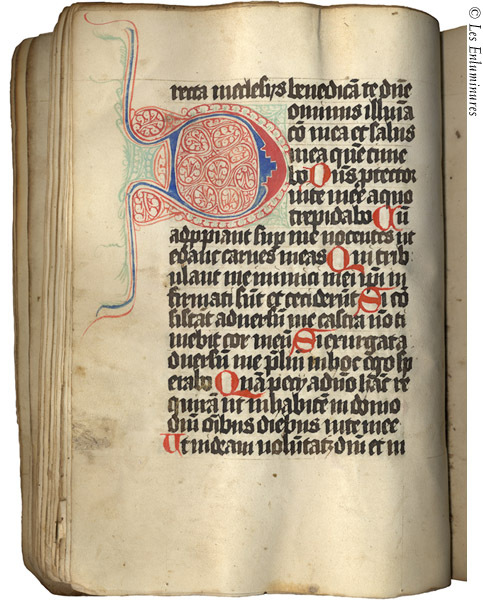 recta in eclesiys benedicā te dn̄e
D ominus illumīa
cō mea et salus
mea quē time
bo Dn̄s ptector
vite mee a quo
trepidabo Cū
adppiant sup me nocentes ut
edant carnes meas Qui trib
ulant me inimici mei in
firmati sūt et ceciderūt Si cō
sistat adversū me castra nō ti
mebit cor meū Si exurgat a
dversū me pliū in hoc ego sp
erabo Unā pecy a dn̄o hāc re
quirā ut inhabitē in domo
dn̄i oībus diebus vite mee
Ut videam volūtatē dn̄i et vi
© Les Enluminures